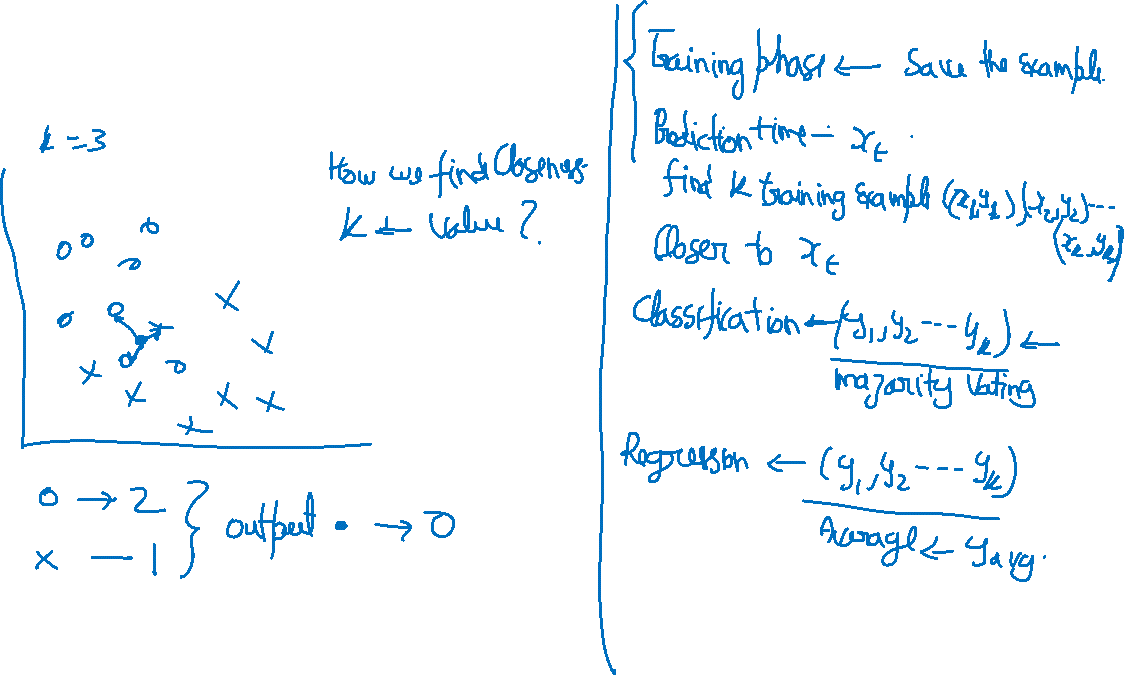 k = 3
How we find Closeness
K ← Value ?
o → 2
x — 1
output • → o
Training phase ← Save the example.
Prediction time – x_t .
find k training example (x_1,y_1) (x_2,y_2) ---
(x_k, y_k)
Closer to x_t
Classification ← (y_1, y_2 --- y_k) ←
majority Voting
Regression ← (y_1, y_2 --- y_k)
Average ← y avg.